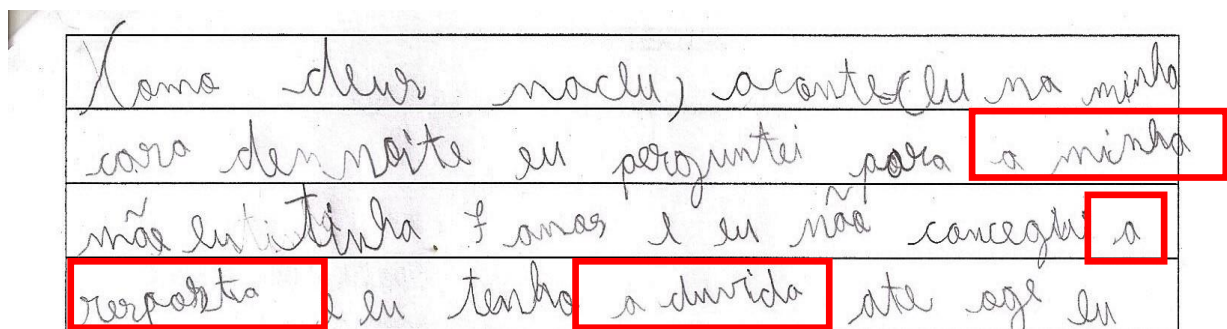 Como deus naceu, aconteceu na minha
casa de noite eu perguntei para a minha
mãe eu tinha. 7 anos e eu não concegui a
resposta e eu tenho a duvida ate oge eu